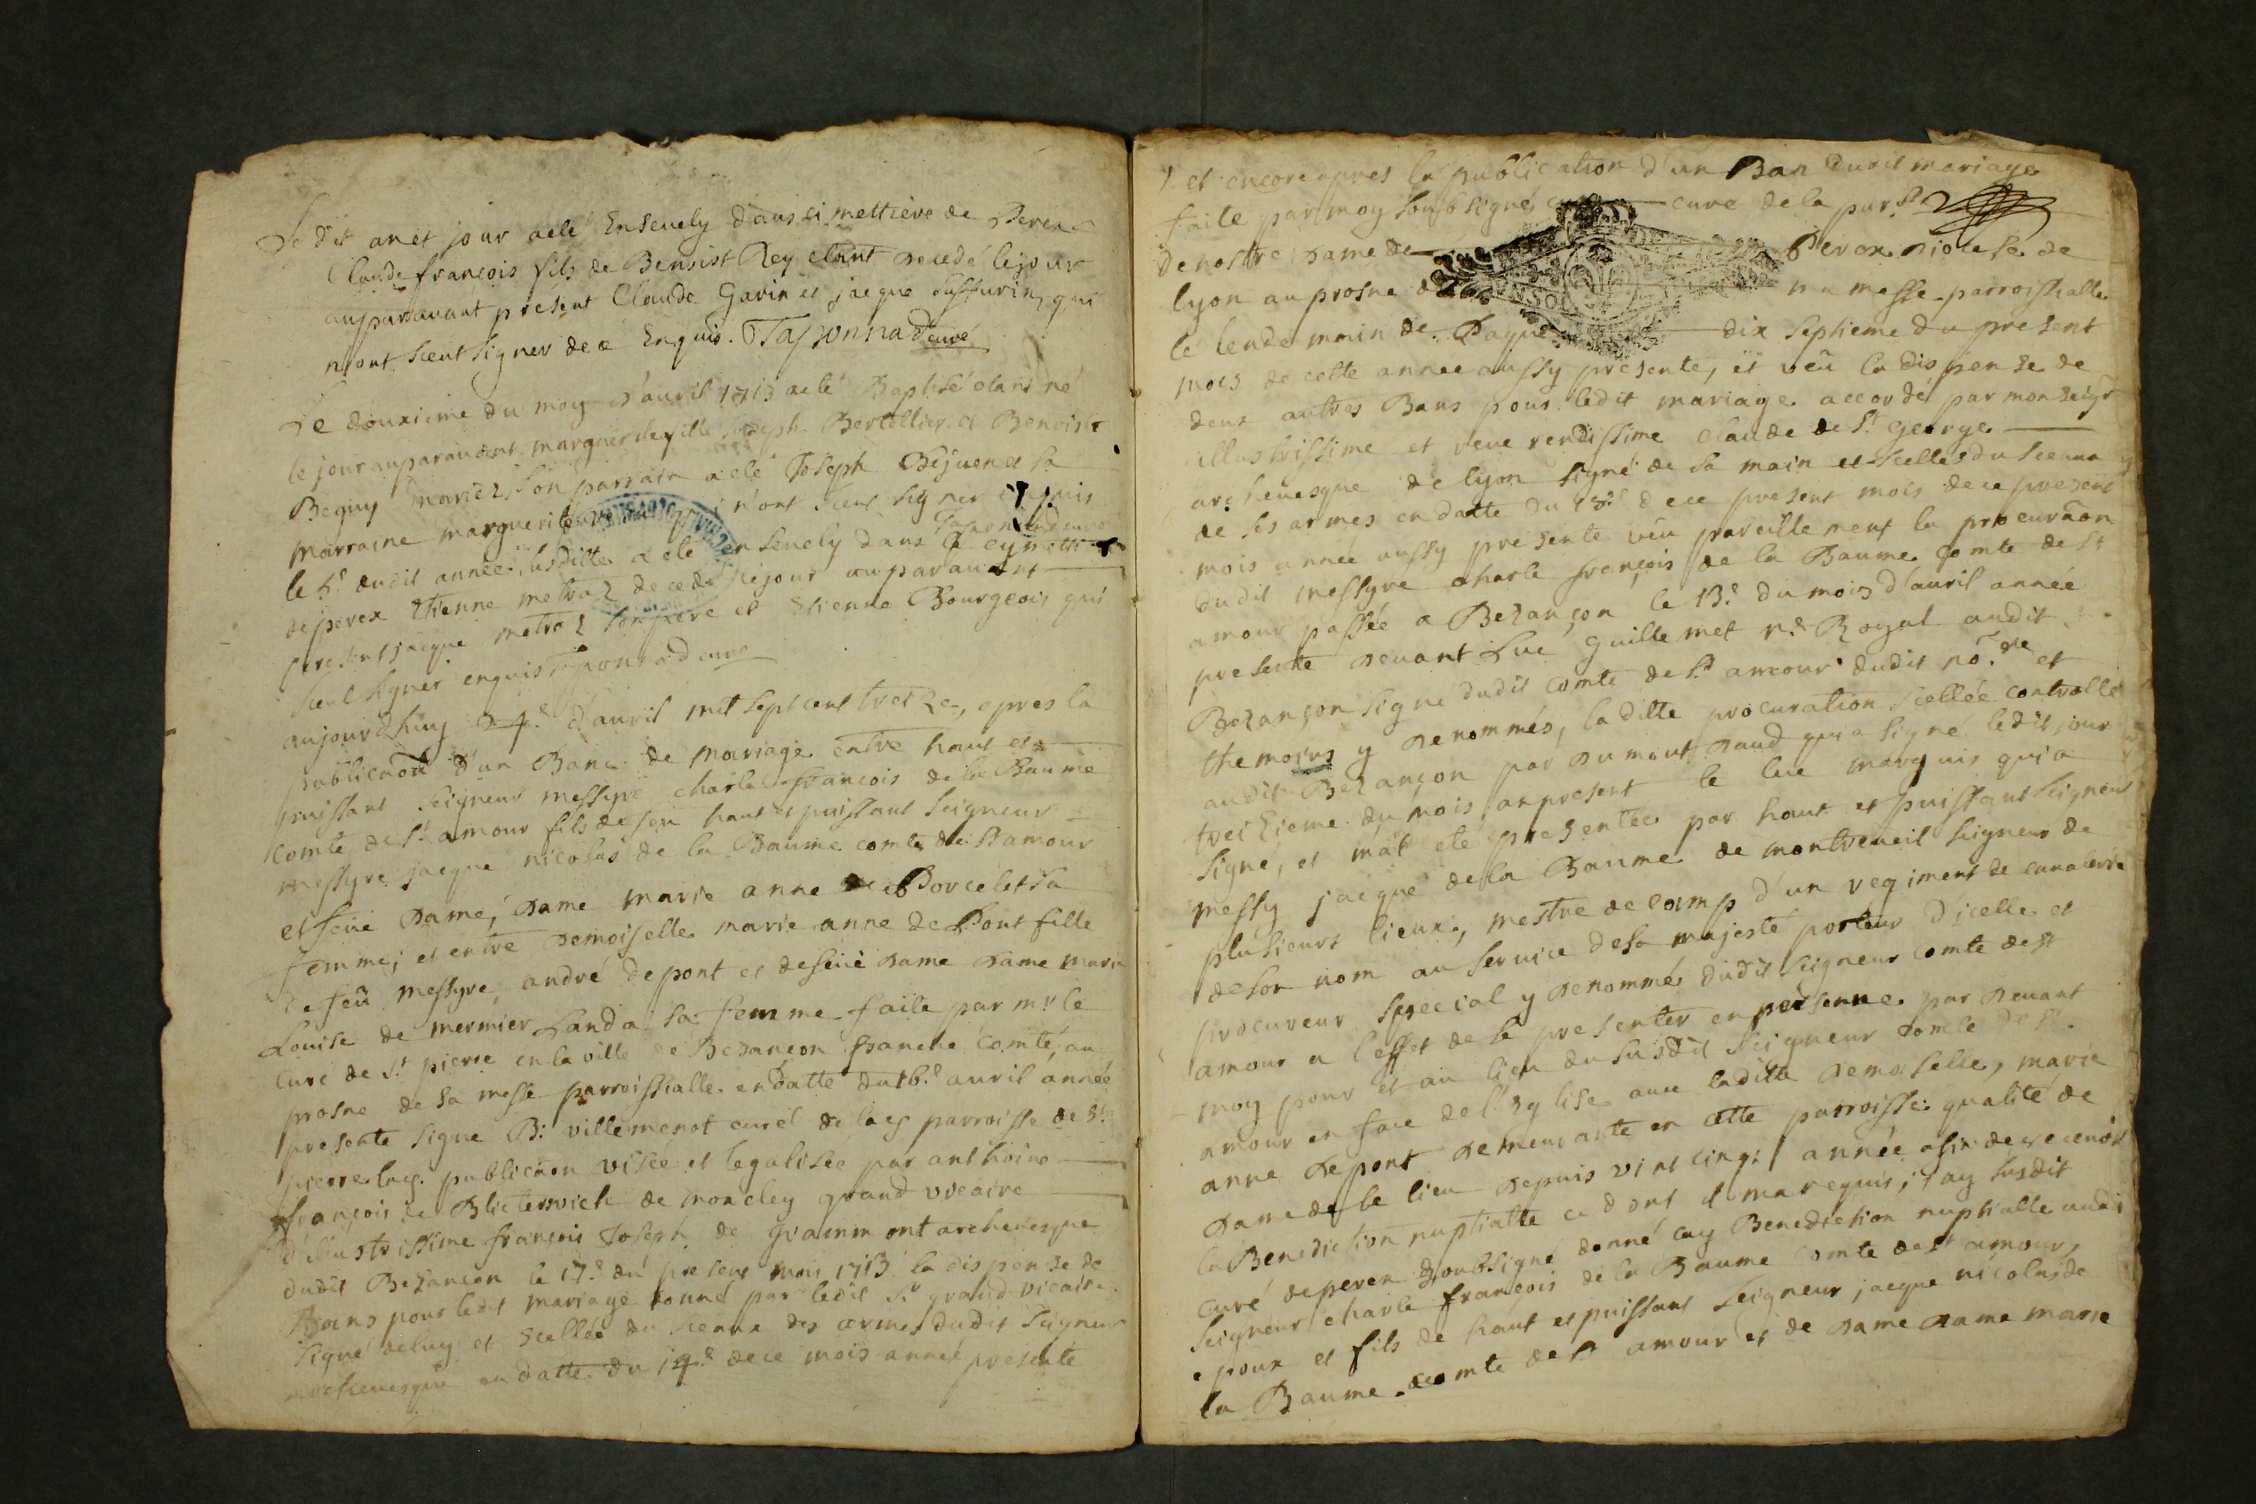 Le dit an et jour a eté Ensevely dans si mettiere de Perex
Claude françois fils de Benoist Rey etant decedé le jour
auparavant présent Claude Gavin et jacque qui
n'ont sceut signer de ce Enquis. Taponnad curé
Le douxieme du moy d'auril 1713 a eté Baptisé etant né
le jour auparavant marguerite fille Joseph Bertollier et Benoiste
Beguy mariez, son parrain a eté Joseph Bejuen et la
marraine marguerite qui n'ont sceut signer enquis
Taponnad curé
le 5.e dudit année susditte a eté ensevely dans le cymetti
de perex Etienne metraz decedé le jour auparavant
present jacque metraz son pere et Etienne Bourgeois qui
sceut signer enquis Taponnad curé
aujourdhuy 24.e d'auril mil sept cent treize, apres la
publicaōn d'un Banc de mariage entre haut et
puissant seigneur messyre charle françois de la Baume
comte de St amour fils de feu haut et puissant seigneur
messyre jacque nicolas de la Baume comte de St amour
et feüe dame, dame marie anne de Porcelet sa
femme; et entre demoiselle marie anne de Pont fille
de feu messyre andré de pont et de feüe dame dame marie
Louise de mermier Landa sa femme faite par mr le
curé de St pierre en la ville de Bezançon franche comté, au
prosne de sa messe parroissialle en datte du 16.e auril année
presente signe B: villemenot curé de la es parroisse de St
pierre laq. publicaōn visée et legalisée par anthoine
françois de Blictersvich de moncley grand vicaire
d'illustrissime françois Joseph de grammont archevesque
dudit Bezançon le 17.e du present mois 1713 la dispense de
Bans pour ledit mariage donné par ledit Sr grand vicaire
signé de luy et scellée du sceaux des armes dudit seigneur
archevesque en datte du 14.e de ce mois année presente
et encore apres la publication d'un Ban dudit mariage
faite par moy soubsigné cure de la par.se
de nostre dame de Perex diocese de
lyon au prosne de ma messe parroissialle
le lendemain de Paques dix septieme du present
mois de cette annee aussy presente, et veu la dispense de
deux autres Bans pour ledit mariage accordé par monseigr
illustrissime et reverendissime claude de St george
archevesque de lyon signé de sa main et scellés du sceaux
de ses armes en datte du 13.e de ce present mois de ce present
mois année aussy presente veu pareillement la procuraōn
dudit messyre charle françois de la Baume comte de St
amour passée a Bezançon le 13.e du mois d'auril année
presente devant Luc guillemet n.e Royal audit
Bezançon signe dudit comte de St amour dudit no.re et
themoins y denommés, laditte procuration scellée controllé
audit Bezançon par dumont daud qui a signe ledit jour
treizieme du mois an present le luc marquis qui a
signé, et m'at eté presentée par haut et puissant seigneur
messy jacque de la Baume de montreveil seigneur de
plusieurs lieux, mestre de camp d'un regiment de cavalerie
de son nom au service de sa majesté porteur d'icelle et
procureur special y denommé dudit seigneur comte de St
amour a l'effet de se presenter en personne par devant
moy pour et au lieu du susdit seigneur comte de St
amour en face de l'eglise avec laditte demoiselle, marie
anne de pont demeurante en cette parroisse qualité de
dame de ce lieu depuis vint cinq année afin de recevoir
la Benediction nuptialle ce dont il ma requis, j'ay susdit
curé de perex soubsigné donné lay Benediction nuptialle audit
seigneur charle françois de la Baume comte de St amour,
epoux et fils de haut et puissant seigneur jacque nicolas de
la Baume comte de St amour et de dame dame marie